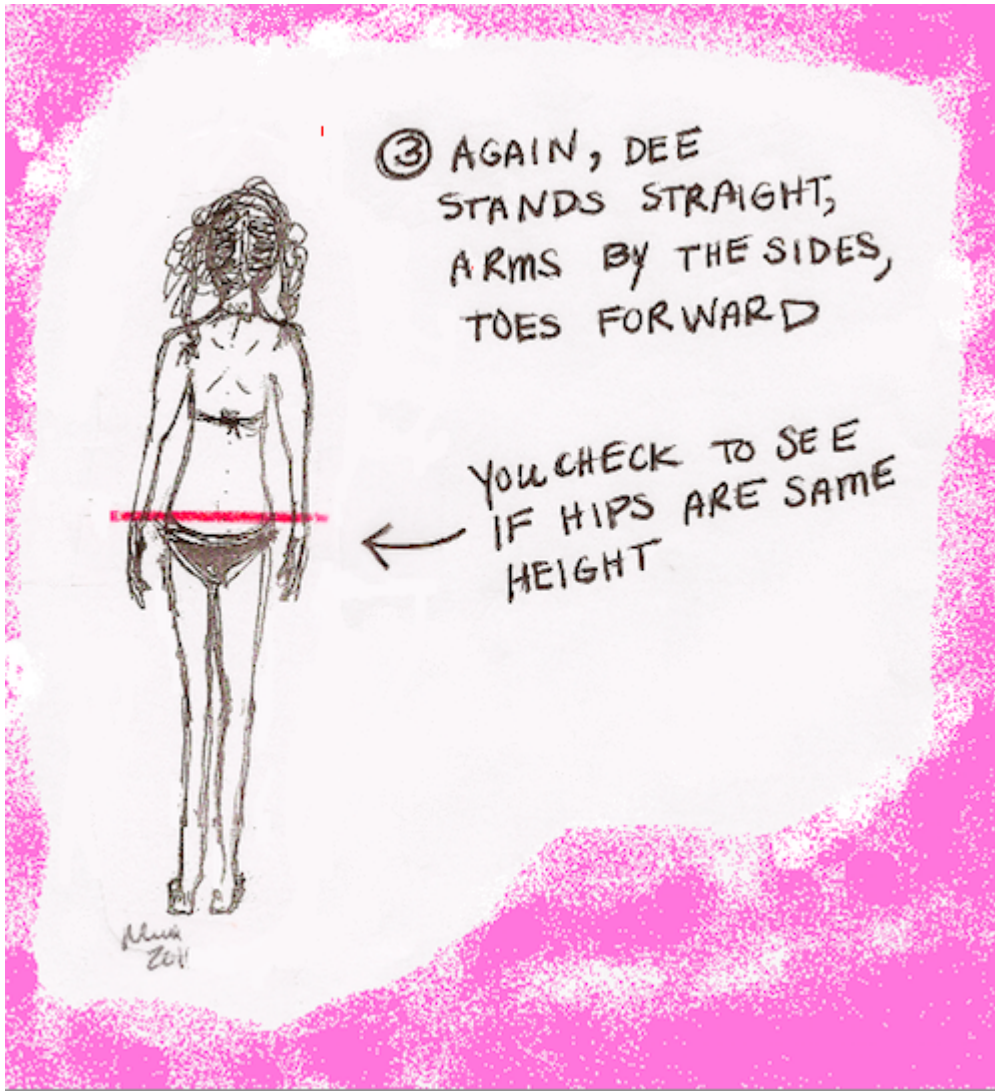 ③ AGAIN, DEE
STANDS STRAIGHT,
ARMS BY THE SIDES,
TOES FORWARD
YOU CHECK TO SEE
IF HIPS ARE SAME
HEIGHT
2011